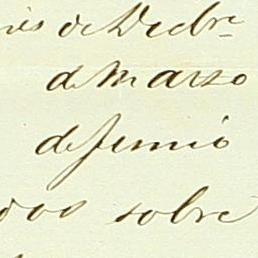 de Decbre
de Marzo
de Junio
sobre